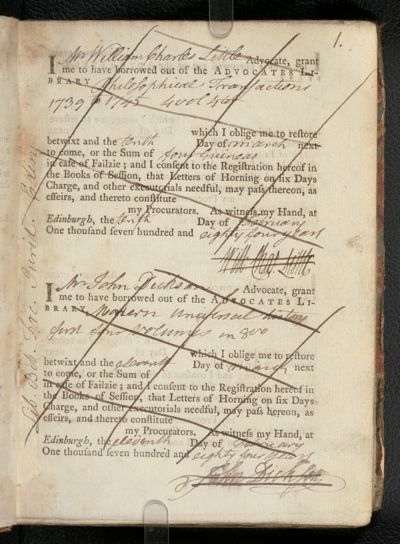 1.
I Mr William Charles Little Advocate, grant
me to have borrowed out of the ADVOCATES LI-
BRARY Philosophical Transactions
1739 to 1745
which I oblige me to restore
betwixt and the tenth Day of march next
to come, or the Sum of four Guineas
in case of Failzie; and I consent to the Registration hereof in
the Books of Session, that Letters of Horning on six Days
Charge, and other executorials needful, may pass thereon, as
effeirs, and thereto constitute
my Procurators. As witness my Hand, at
Edinburgh, the tenth Day of February
One thousand seven hundred and eighty four years
Will: Chas: Little
I Mr John Dickson Advocate, grant
me to have borrowed out of the ADVOCATES LI-
BRARY Modern universal history
first four Volumes in 8vo
which I oblige me to restore
betwixt and the eleventh Day of march next
to come, or the Sum of
in case of Failzie; and I consent to the Registration hereof in
the Books of Session, that Letters of Horning on six Days
Charge, and other executorials needful, may pass hereon, as
effeirs, and thereto constitute
my Procurators. As witness my Hand, at
Edinburgh, the eleventh Day of February
One thousand seven hundred and eighty four years
John Dickson